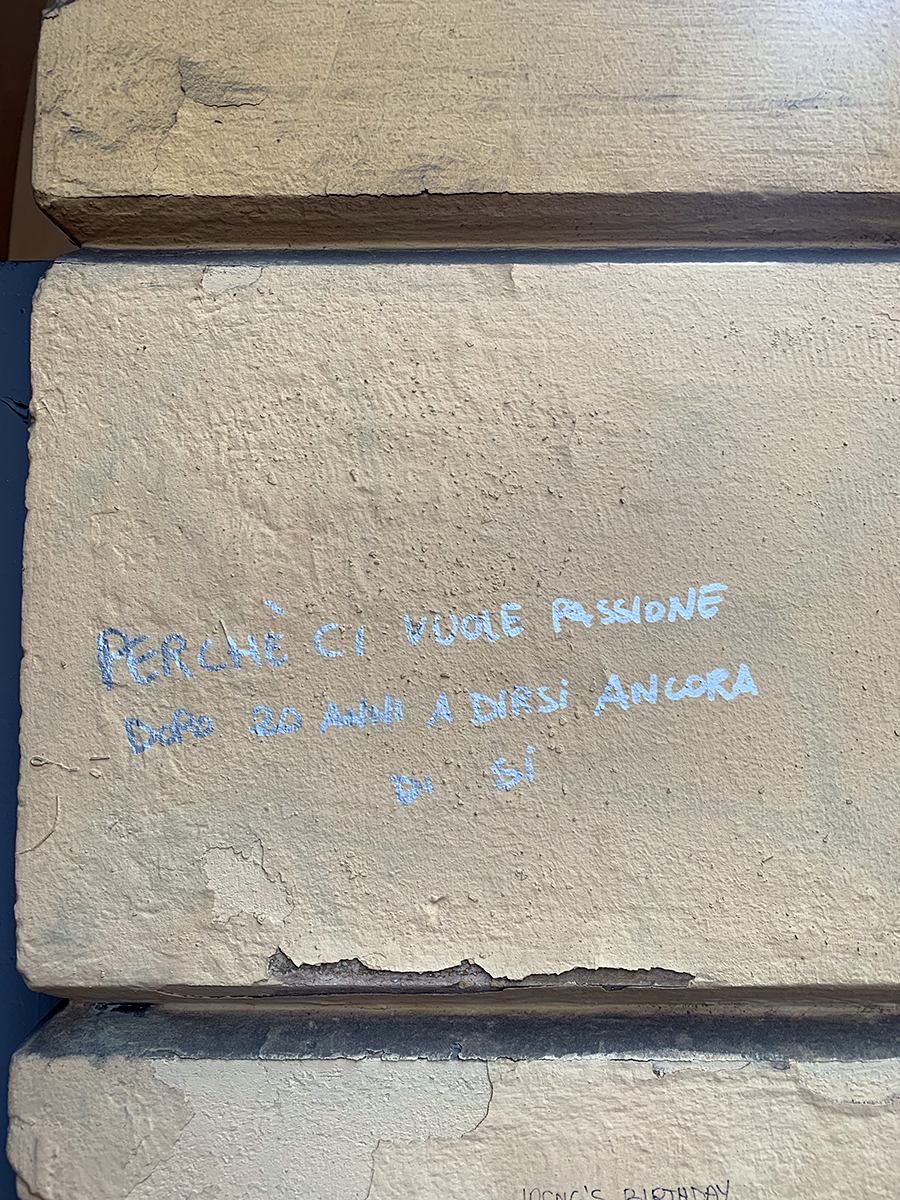 PERCHÈ CI VUOLE PASSIONE
DOPO 20 ANNI A DIRSI ANCORA
DI SÌ
BIRTHDAY